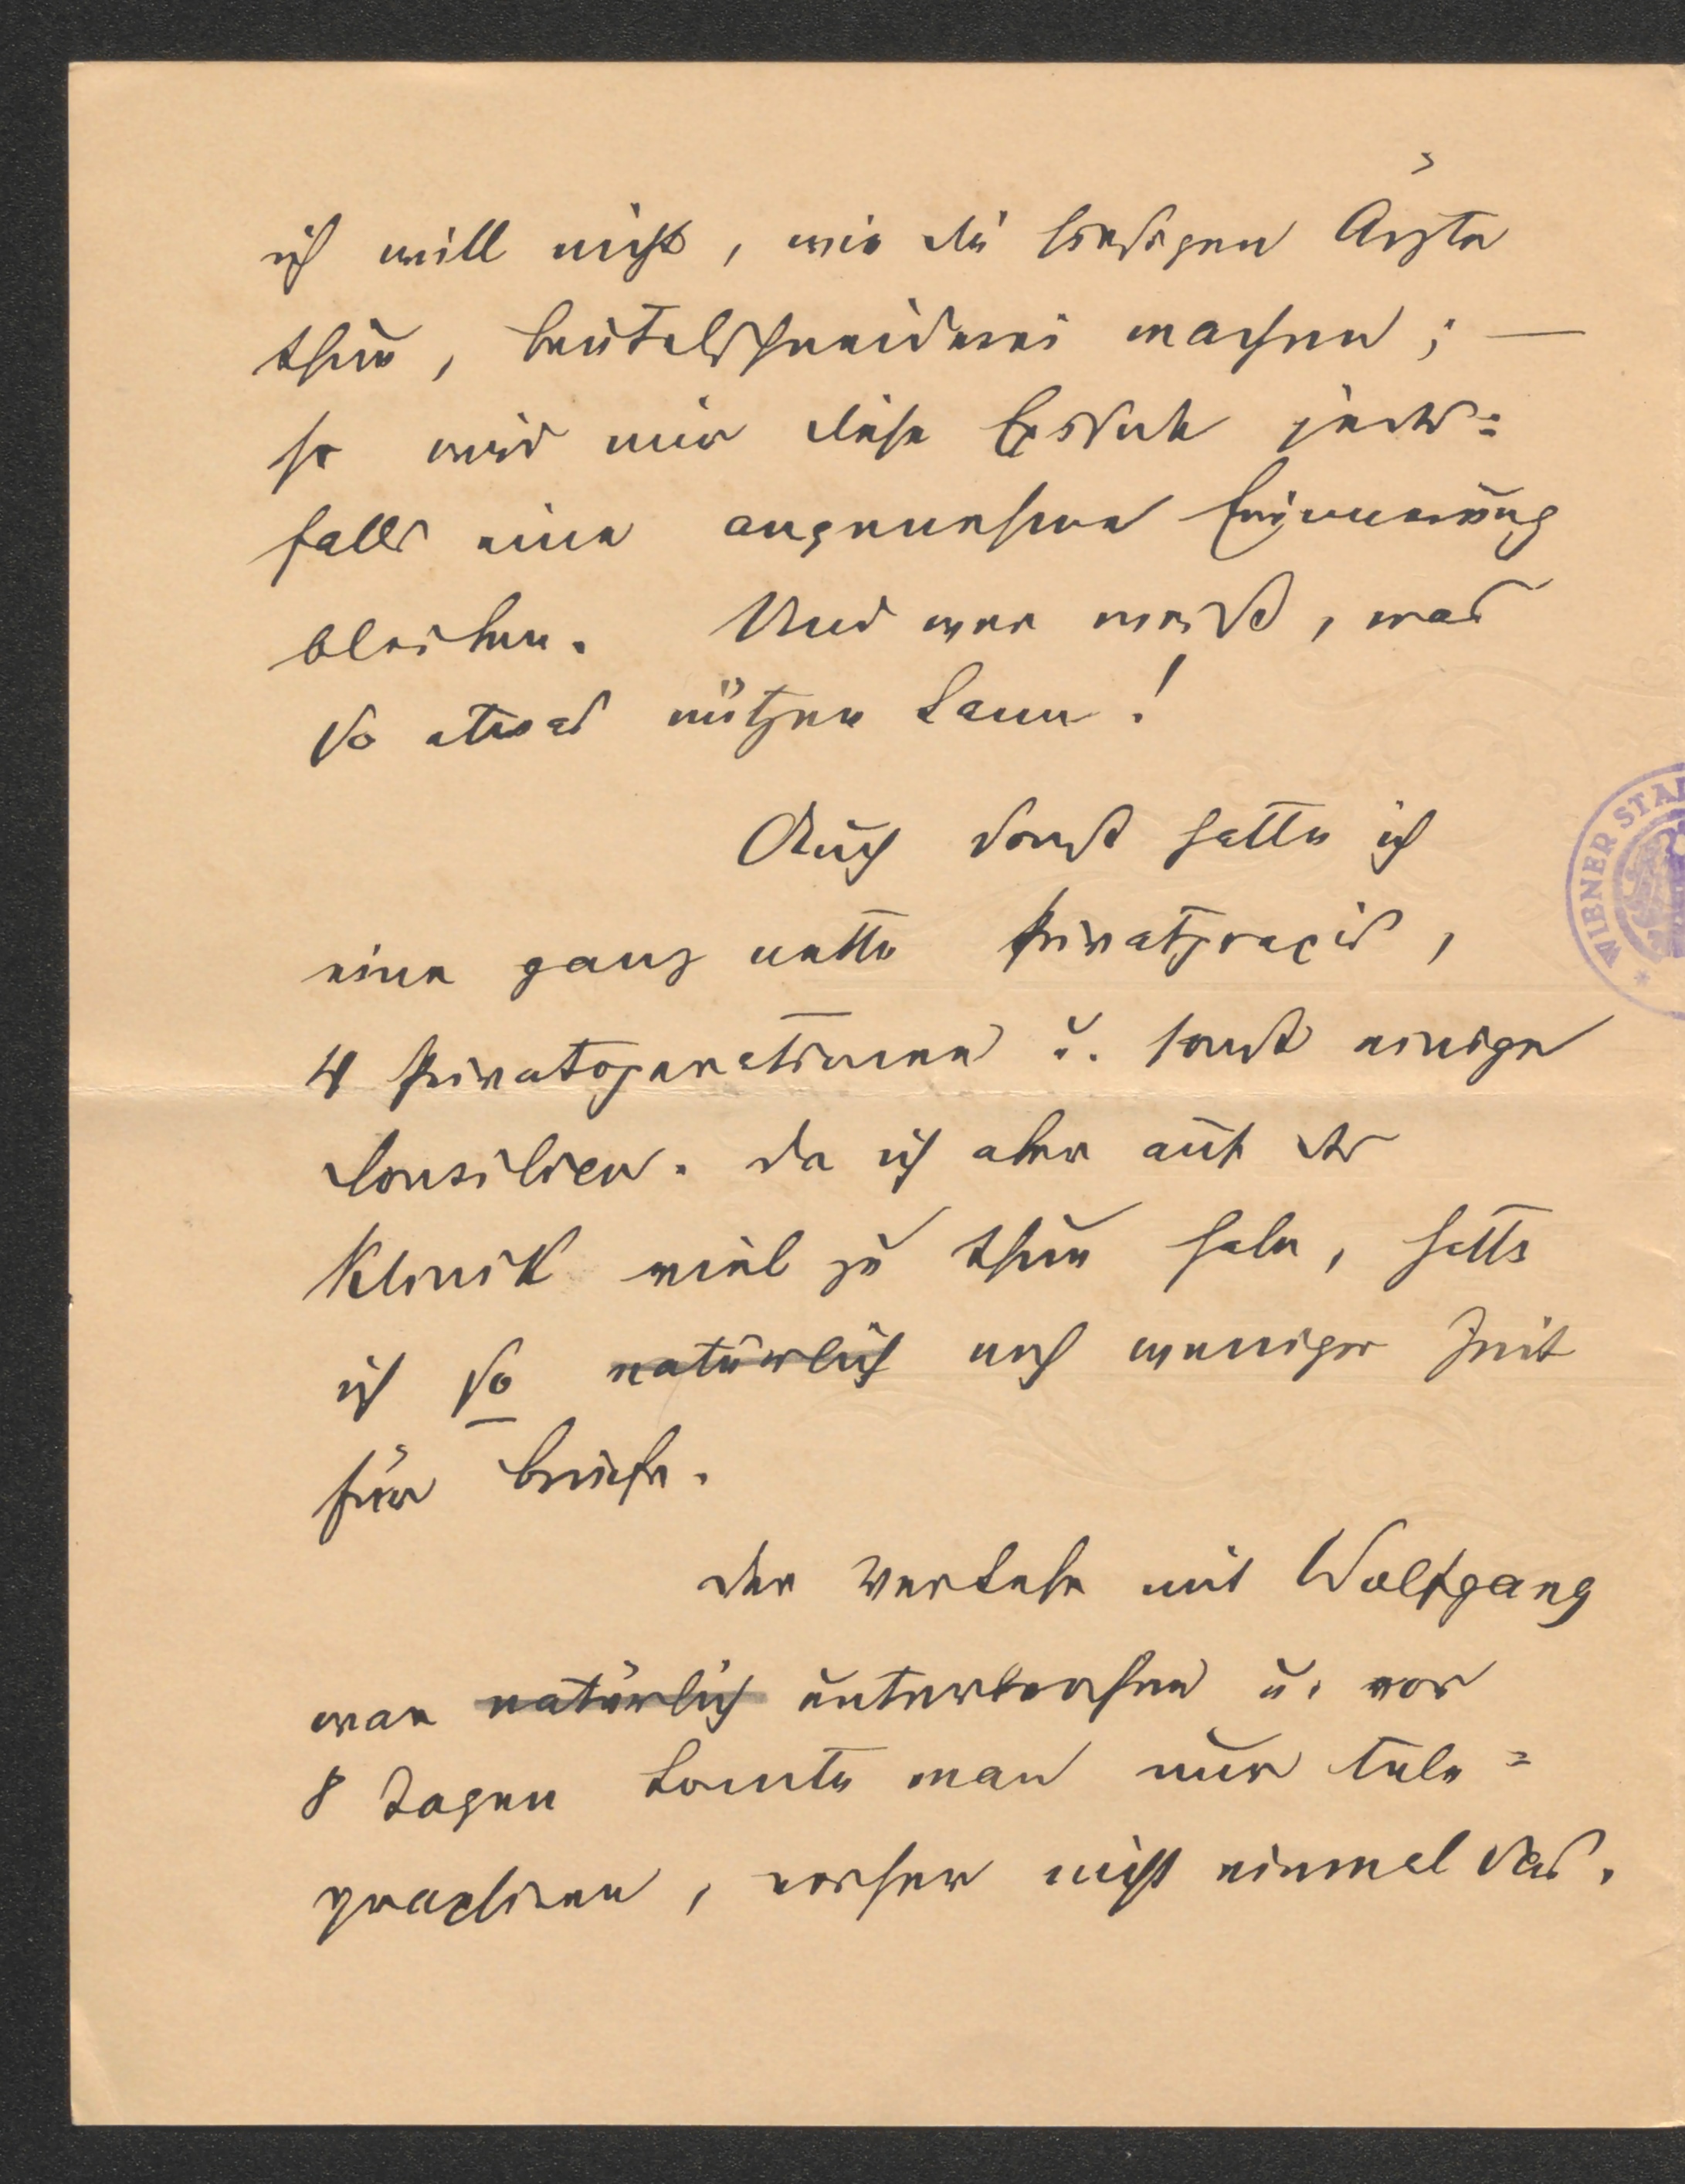 ich will nicht, wie die hiesigen Ärzte
thun, Beutelschneiderei machen; —
so wird mir diese Episode jeden=
falls eine angenehme Erinnerung
bleiben. Und wer weiß, was
so etwas nützen kann!
Auch sonst hatte ich
eine ganz nette Privatpraxis,
4 Privatoperationen u. sonst einige
Consilien. Da ich aber auf der
Klinik viel zu thun habe, hatte
ich so natürlich noch weniger Zeit
für Briefe.
Der Verkehr mit Wolfgang
war natürlich unterbrochen u. vor
8 Tagen konnte man nur tele=
graphiren, vorher nicht einmal das.
WIENER STA